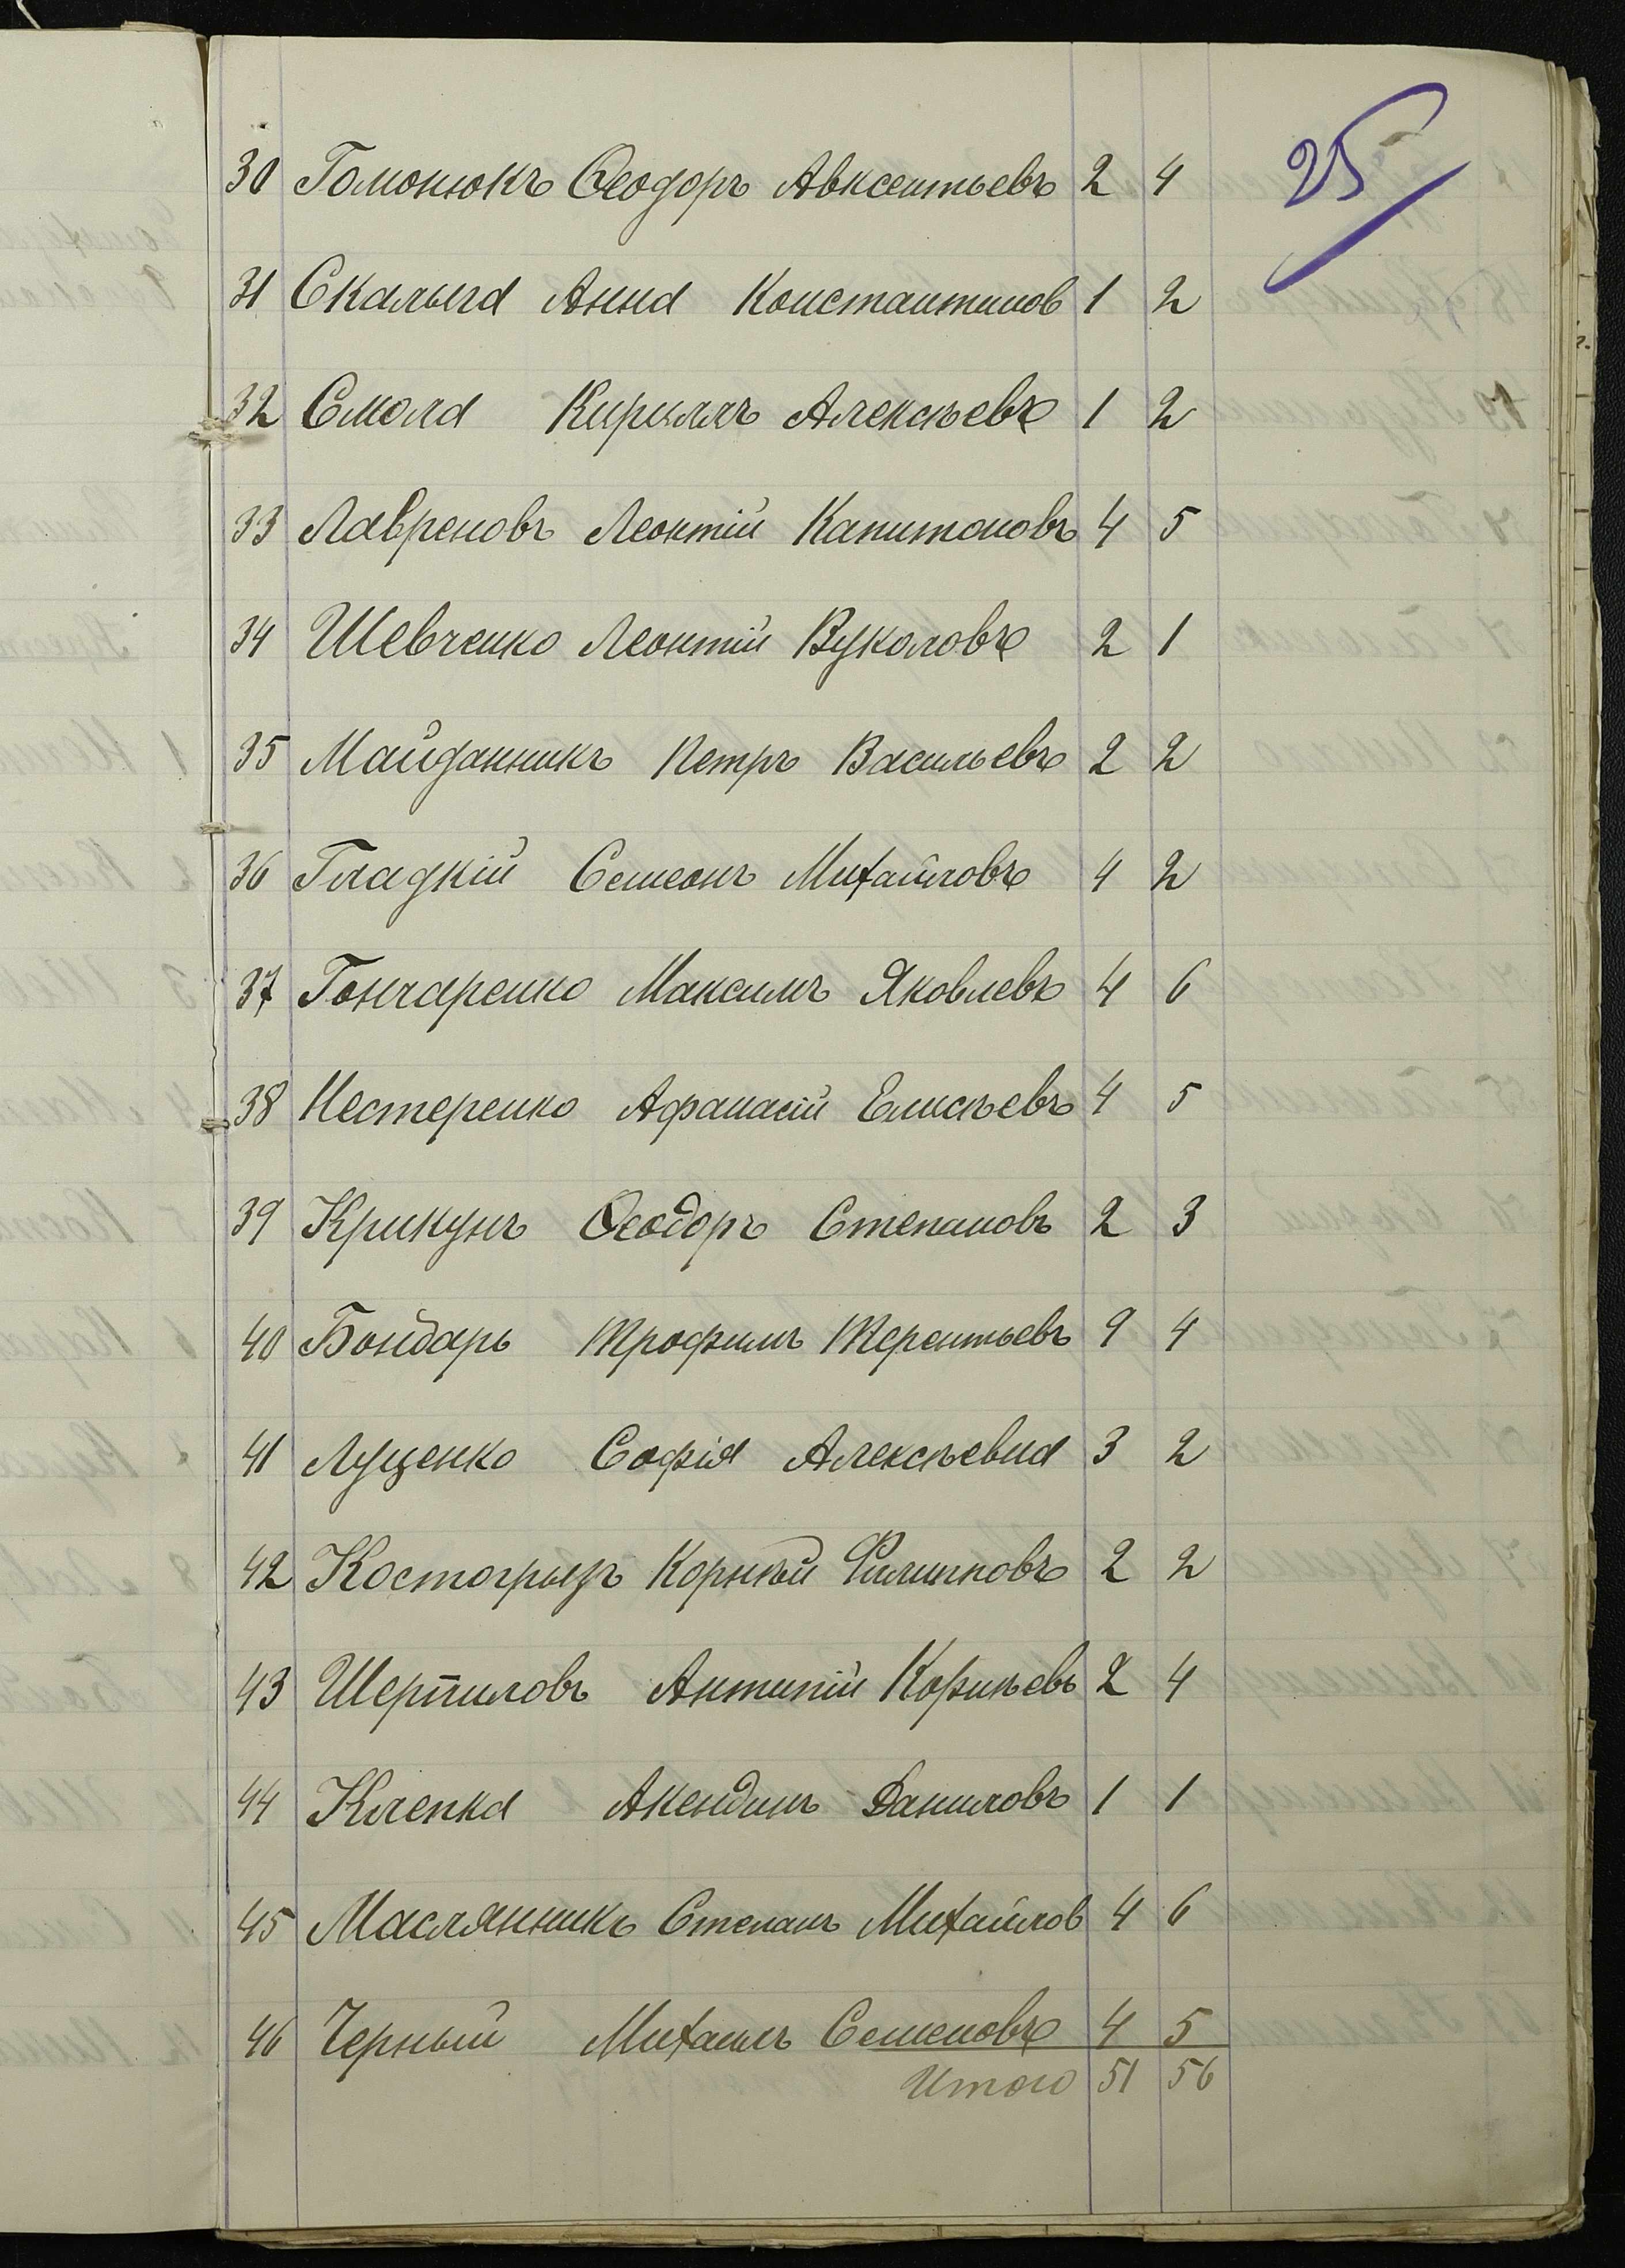 25
30 Гомонюкъ Ѳеодоръ Авксентьевъ 2 4
31 Скалыга Анна Константинов 1 2
32 Смола Кириллъ Алексѣевъ 1 2
33 Лавреновъ Леонтій Капитоновъ 4 5
34 Шевченко Леонтій Вуколовъ 2 1
35 Майданникъ Петръ Васильевъ 2 2
36 Гладкій Семеонъ Михайловъ 4 2
37 Гончаренко Максимъ Яковлевъ 4 6
38 Нестеренко Афанасій Елисѣевъ 4 5
39 Крикунъ Ѳеодоръ Степановъ 2 3
40 Бондарь Трофимъ Терентьевъ 9 4
41 Луценко Софія Алексѣевна 3 2
42 Костогрызъ Корнѣй Филиповъ 2 2
43 Шерпиловъ Антипій Корнѣевъ 2 4
44 Клепка Акендинъ Даниловъ 1 1
45 Маслянникъ Степанъ Михайлов 4 6
46 Черный Михаилъ Семеновъ 4 5
Итого 51 56